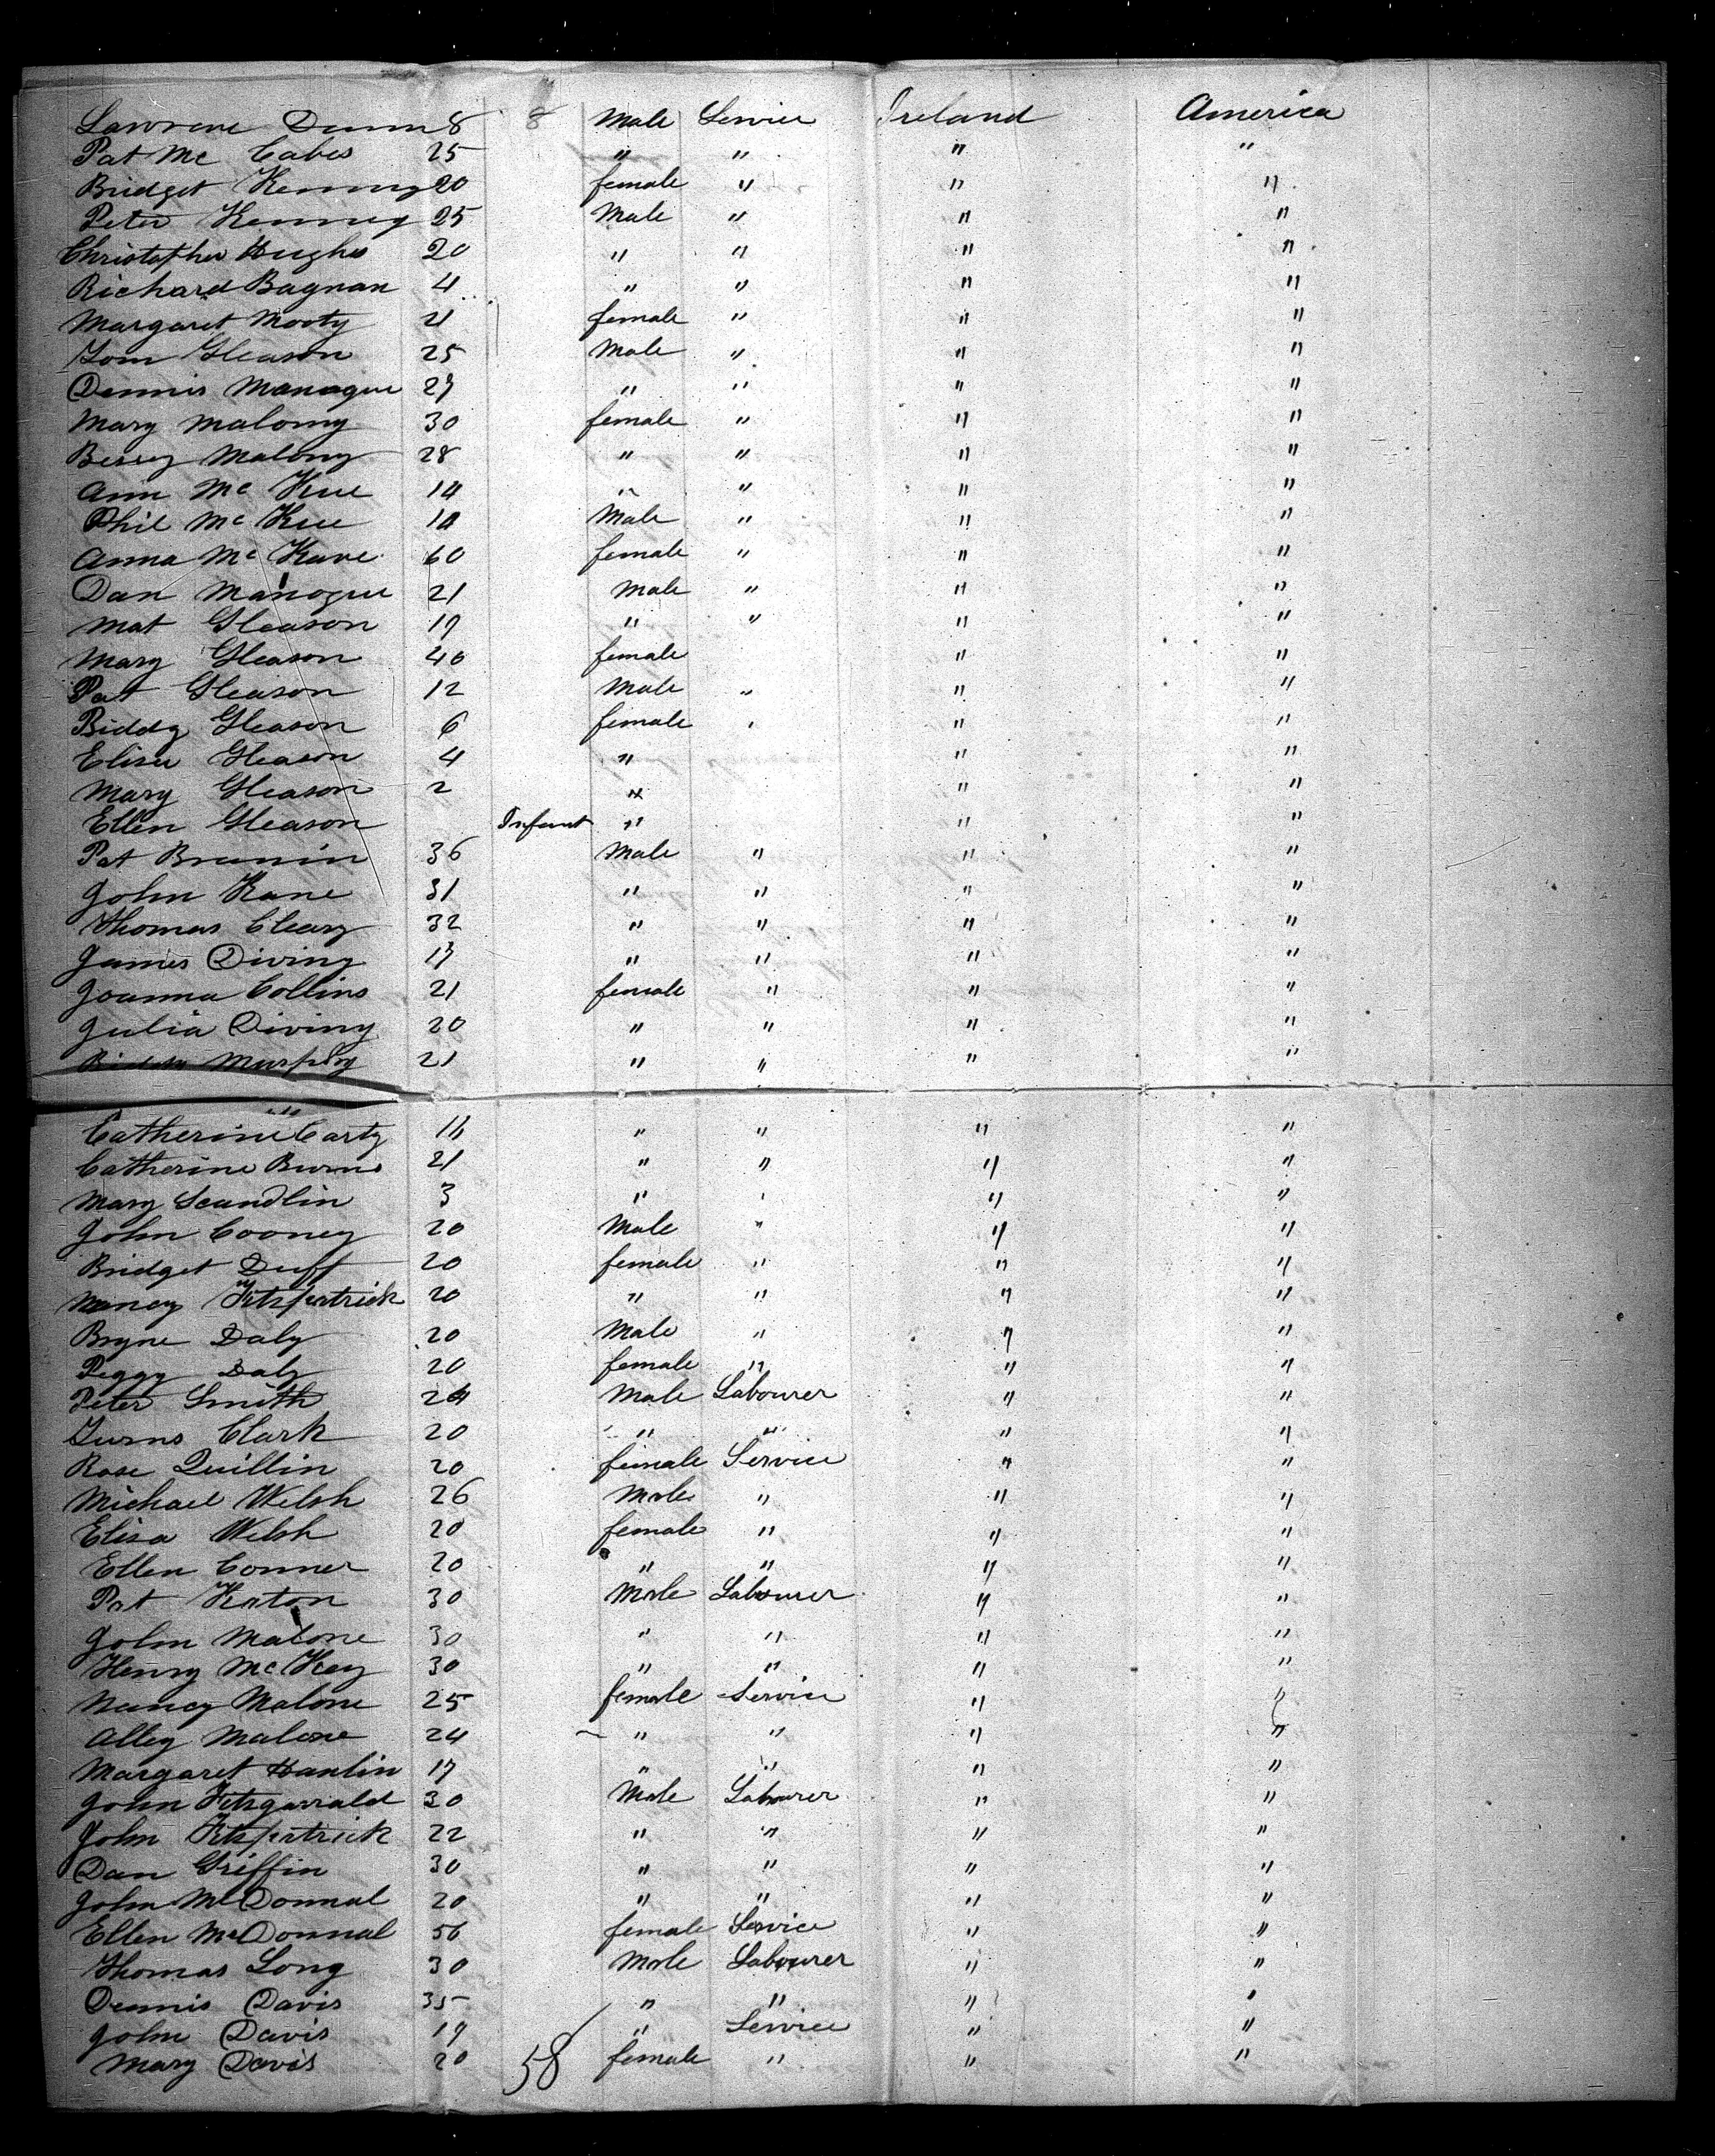 Lawrence Dunn 8 8 Male Service Ireland America
Pat Mc Cabes 25 " " " "
Bridget Kenny 20 female " " "
Peter Kenney 25 Male " " "
Christopher Hughs 20 " " " "
Richard Bagnan 4 " " " "
Margaret Mooty 21 female " " "
Tom Gleason 25 Male " " "
Dennis Manague 27 " " " "
Mary Malomy 30 female " " "
Bessey Malony 28 " " " "
Ann Mc Kue 14 " " " "
Phil Mc Kue 10 Male " " "
Anna Mc Kave 60 female " " "
Dan Manogue 21 Male " " "
Mat Gleason 19 " " " "
Mary Gleason 40 female " "
Pat Gleason 12 Male " " "
Biddy Gleason 6 female " " "
Elisa Gleason 4 " " "
Mary Gleason 2 " " "
Ellen Gleason Infant " " "
Pat Brannin 36 Male " " "
John Kane 31 " " " "
Thomas Cleary 32 " " " "
James Diving 19 " " " "
Joanna Collins 21 female " " "
Julia Diving 20 " " " "
Biddy Murphy 21 " " " "
Catherine Carty 16 " " " "
Catherine Burns 21 " " " "
Mary Scandlin 3 " " " "
John Cooney 20 Male " " "
Bridget Duff 20 female " " "
Nancy Fitzpatrick 20 " " " "
Bryne Daly 20 Male " " "
Peggy Daly 20 female " " "
Peter Smith 24 Male Labourer " "
Clark 20 " " " "
Rose Quillin 20 female Service " "
Michael Welsh 26 Male " " "
Elisa Welsh 20 female " " "
Ellen Conner 20 " " " "
Pat Katon 30 Male Labourer " "
John Malone 30 " " " "
Henry Mc Key 30 " " " "
Nancy Malone 25 female Service " "
Alley Malone 24 " " " "
Margaret Hanlin 17 " " " "
John Fitzgarrald 30 Male Labourer " "
John Fitzpatrick 22 " " " "
Dan Griffin 30 " " " "
John McDonnal 20 " " " "
Ellen McDonnal 56 female Service " "
Thomas Long 30 Male Labourer " "
Dennis Davis 35 " " " "
John Davis 19 " Service " "
Mary Davis 20 58 female " " "